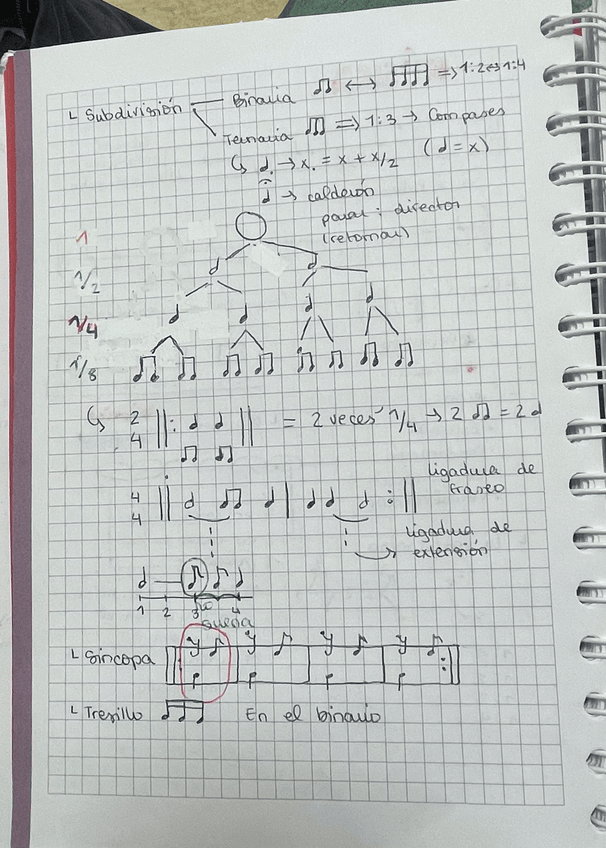 └ Subdivisión — Binaria ♫ ↔ ♬ => 1:2 ⇔ 1:4
Ternaria => 1:3 → Compases
↳ 𝅗𝅥. → x. = x + x/2 (𝅗𝅥 = x)
→ calderón
parar; director
(retornar)
1
1/2
1/4
1/8
↳ 2/4 ||: ♩ ♩ || = 2 veces 1/4 → 2 ♫ = 2 ♩
♫ ♫
4/4 || 𝅗𝅥 ♫ ♩ | ♩ ♩ 𝅗𝅥 :|| ligadura de
fraseo
ligadura de
extensión
1 2 3 4
suena
└ Síncopa
└ Tresillo En el binario